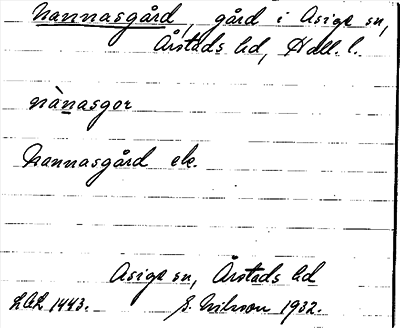 Nannasgård, gård i Asige sn,
Årstads hd, Hall. l.
nànasgor
Nannasgård ek.
Asige sn, Årstads hd
LAL 1443. E. Nilsson 1932.